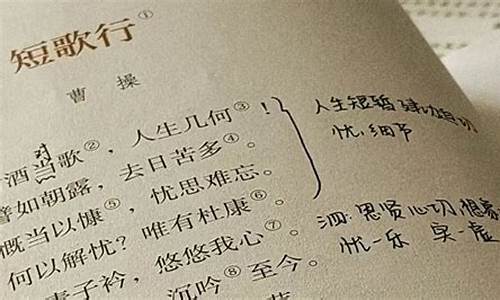 短歌行①
曹操
酒当歌②，人生几何③！
对
譬如朝露，去日苦多④。
慨当以慷⑤，忧思难忘。
何以解忧？唯有杜康⑥。
青子衿，悠悠我心⑦。
沉吟⑧至今。
人生短暂 建功
忧.细节
泗.思贤心切
忧一乐 实一虚